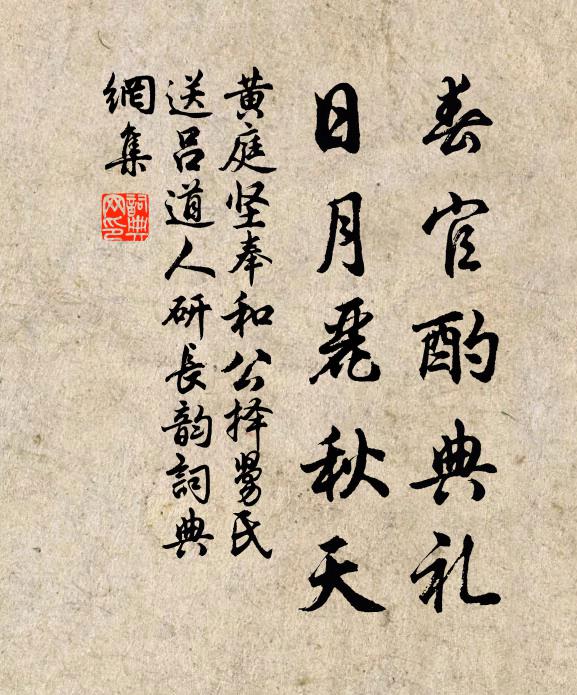 春官酌典礼
日月麗秋天
黄庭坚奉和公择舅氏
送吕道人研長韵詞典
網集
詞典
网印